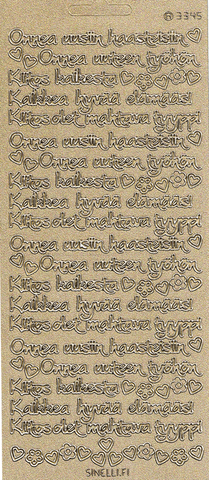 3345
Onnea uusiin haasteisiin
Onnea uuteen työhön
Kiitos kaikesta
Kaikkea hyvää elämääsi
Kiitos olet mahtava tyyppi
Onnea uusiin haasteisiin
Onnea uuteen työhön
Kiitos kaikesta
Kaikkea hyvää elämääsi
Kiitos olet mahtava tyyppi
Onnea uusiin haasteisiin
Onnea uuteen työhön
Kiitos kaikesta
Kaikkea hyvää elämääsi
Kiitos olet mahtava tyyppi
Onnea uusiin haasteisiin
Onnea uuteen työhön
Kiitos kaikesta
Kaikkea hyvää elämääsi
Kiitos olet mahtava tyyppi
SINELLI.FI